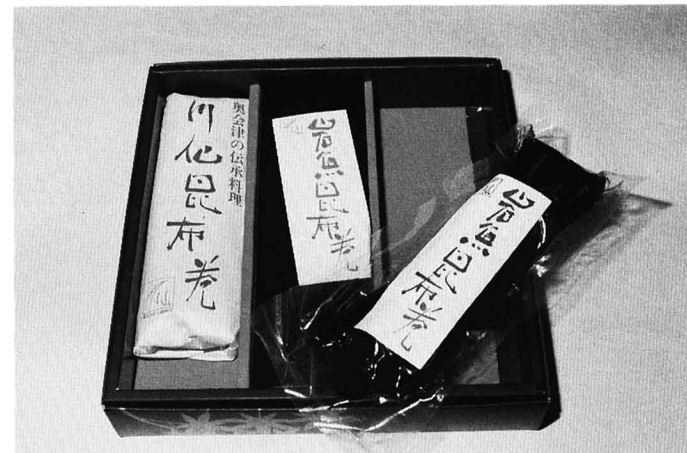 奥会津の伝承料理
川仙昆布巻
岩魚昆布巻
岩魚昆布巻